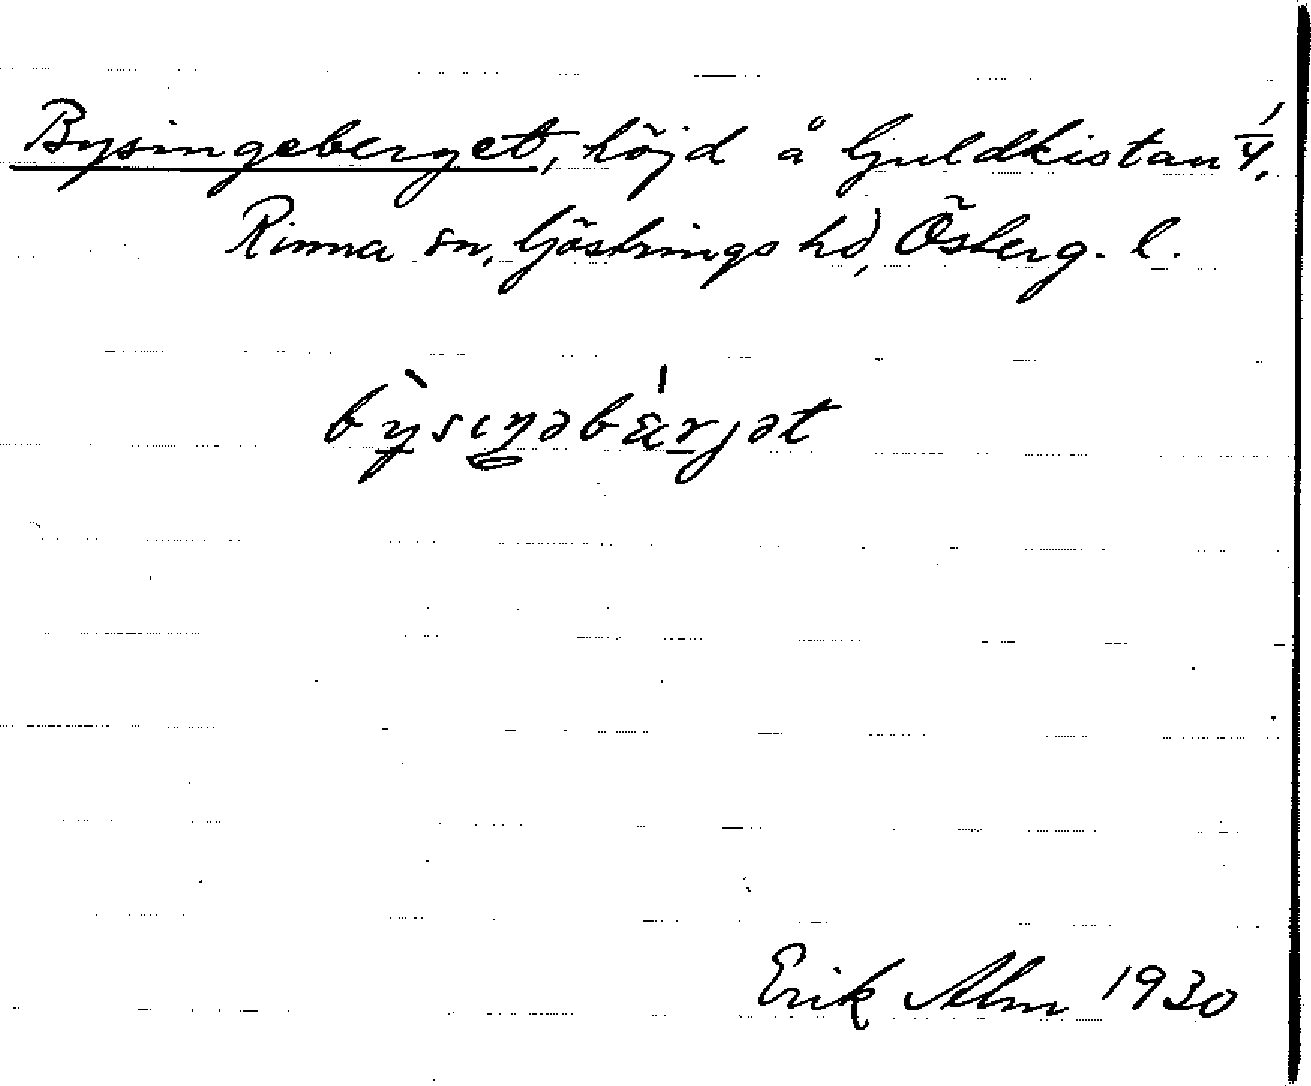 Bysingeberget, höjd å Guldkistan 1/4,
Rinna sn, Göstrings hd, Österg. l.
bỳsıŋəbæ̍rjət
Erik Alm 1930